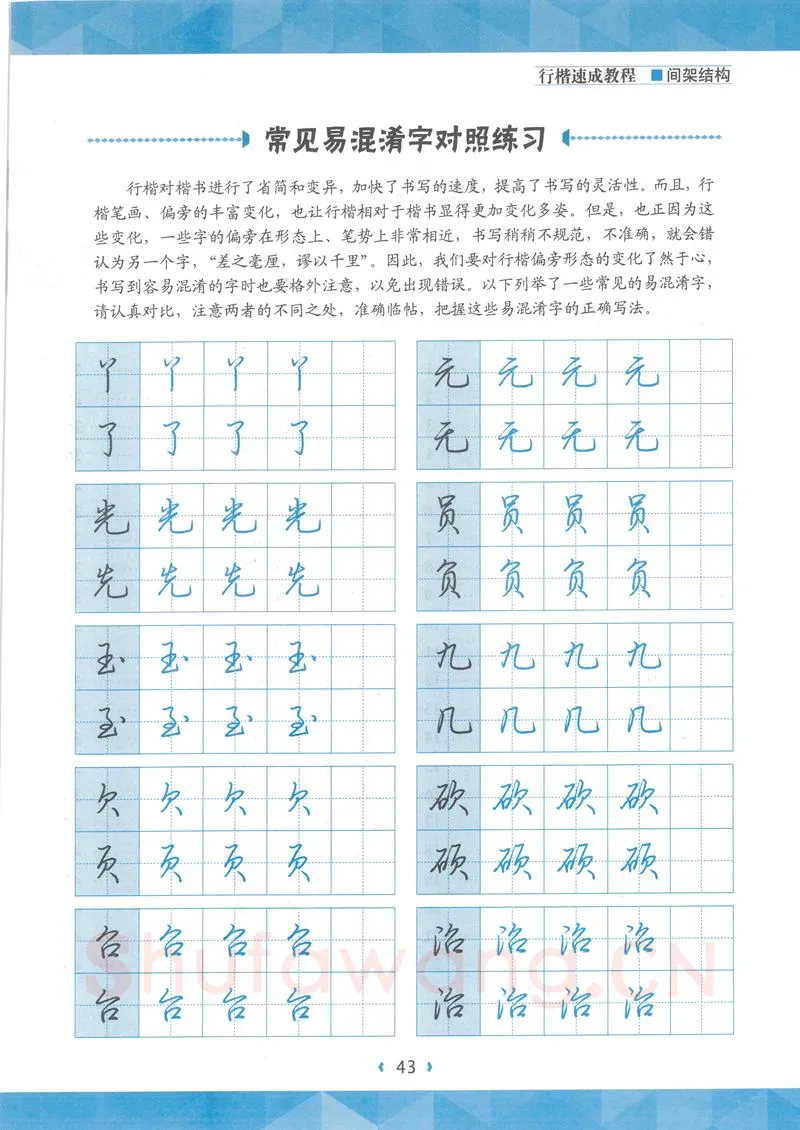 行楷速成教程 ■间架结构
常见易混淆字对照练习
行楷对楷书进行了省简和变异，加快了书写的速度，提高了书写的灵活性。而且，行
楷笔画、偏旁的丰富变化，也让行楷相对于楷书显得更加变化多姿。但是，也正因为这
些变化，一些字的偏旁在形态上、笔势上非常相近，书写稍稍不规范，不准确，就会错
认为另一个字，“差之毫厘，谬以千里”。因此，我们要对行楷偏旁形态的变化了然于心，
书写到容易混淆的字时也要格外注意，以免出现错误。以下列举了一些常见的易混淆字，
请认真对比，注意两者的不同之处，准确临帖，把握这些易混淆字的正确写法。
丫 丫 丫 丫
了 了 了 了
元 元 元 元
无 无 无 无
光 光 光 光
先 先 先 先
员 员 员 员
负 负 负 负
玉 玉 玉 玉
至 至 至 至
九 九 九 九
几 几 几 几
欠 欠 欠 欠
页 页 页 页
砍 砍 砍 砍
硕 硕 硕 硕
召 召 召 召
台 台 台 台
沼 沼 沼 沼
治 治 治 治
Shufawang.CN
43